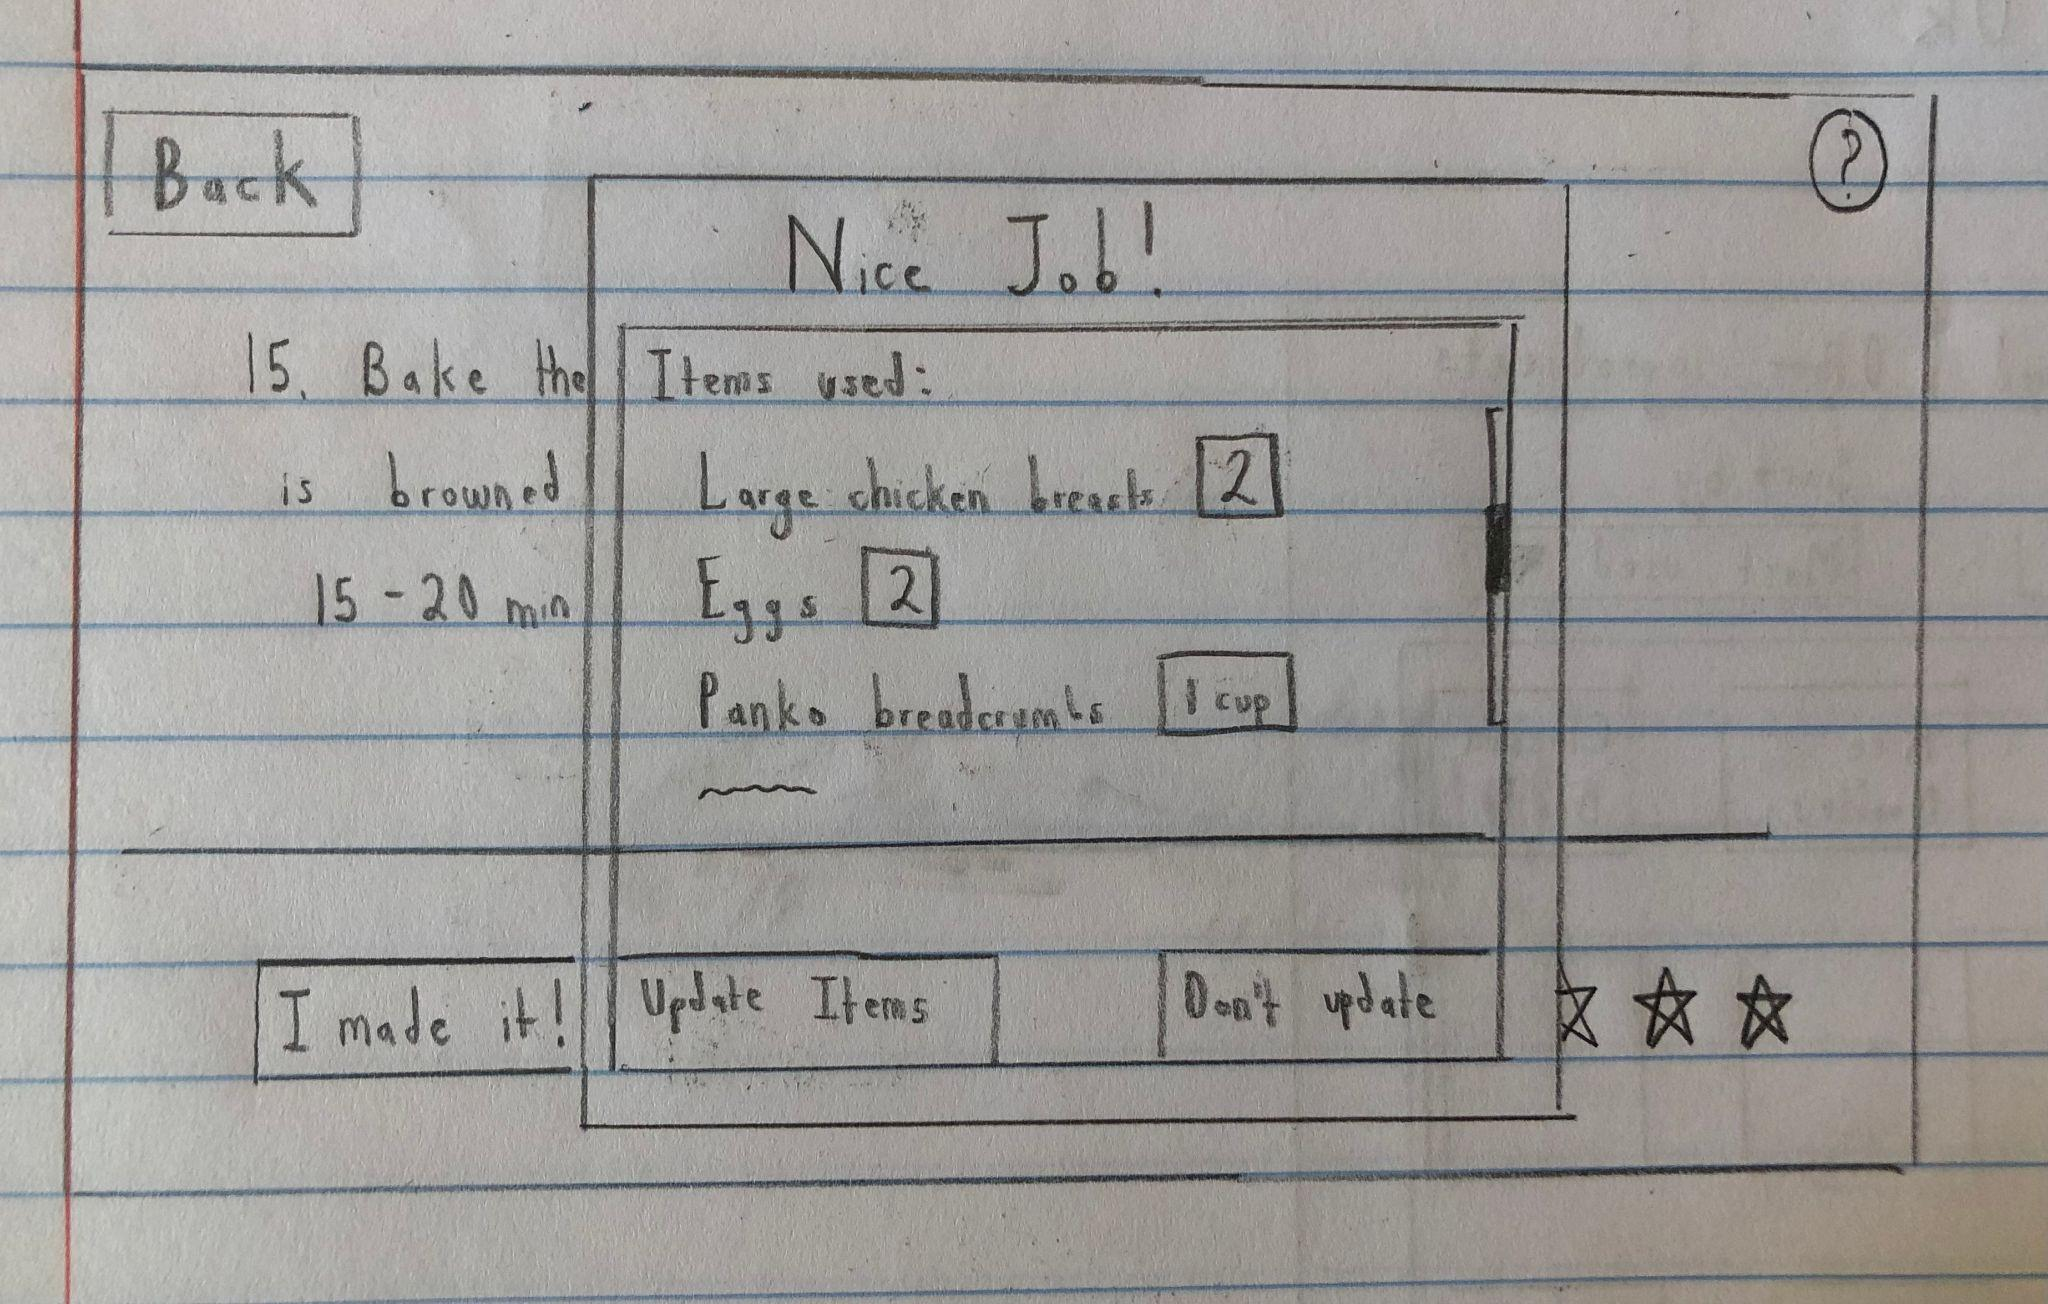 Back
?
Nice Job!
15. Bake the
is browned
15-20 min
Items used:
Large chicken breasts 2
Eggs 2
Panko breadcrumbs 1 cup
I made it!
Update Items
Don't update